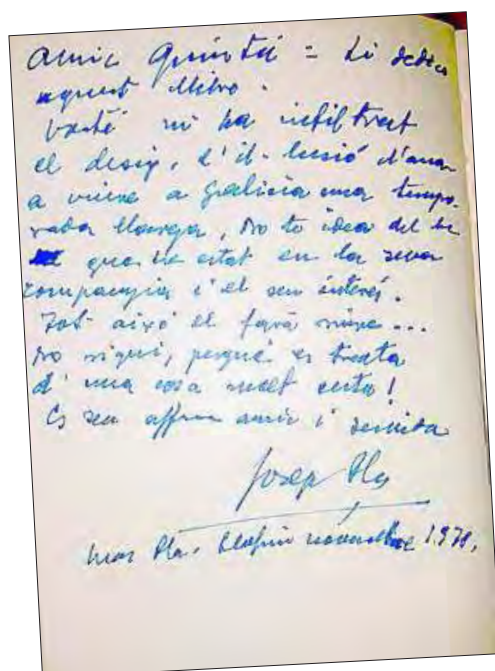 Amic Quintà = Li dedico
aquest llibre.
Vostè m'ha infiltrat
el desig, l'il-lusió d'anar
a viure a Galícia una tempo-
rada llarga, No té idea del bé
que he estat en la seva
companyia i el seu interès.
Tot això el farà riure...
No rigui, perquè es tracta
d'una cosa molt certa!
Es seu affm amic i
Josep Pla
Mas Pla. Llofriu novembre 1.978.